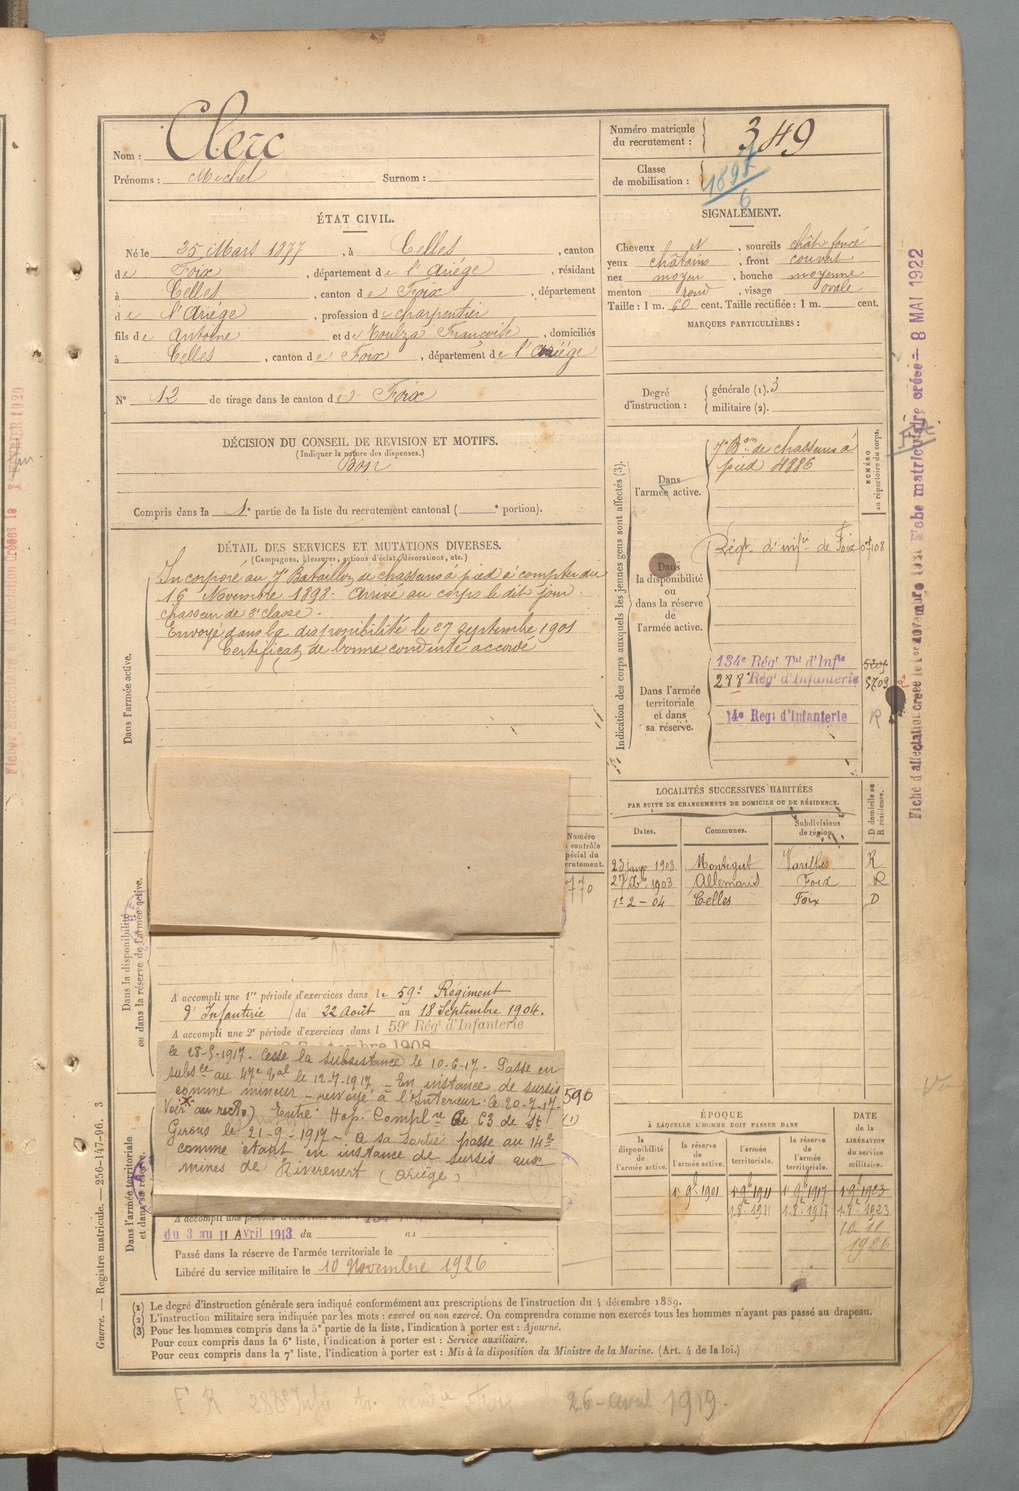 Nom : Clerc
Prénoms : Michel Surnom :
Numéro matricule du recrutement : 349
Classe de mobilisation :
ÉTAT CIVIL.
Né le 25 Mars 1877, à Celles, canton
de Foix, département de l'Ariège, résidant
à Celles, canton de Foix, département
de l'Ariège, profession de charpentier
fils de Antoine et de Toulza Françoise, domiciliés
à Celles, canton de Foix, département de l'Ariège
N° 12 de tirage dans le canton de Foix
SIGNALEMENT.
Cheveux N, sourcils chât foncé
yeux châtains, front couvert
nez moyen, bouche moyenne
menton rond, visage ovale
Taille : 1 m. 60 cent. Taille rectifiée : 1 m. cent.
MARQUES PARTICULIÈRES :
Degré d'instruction : générale (1). 3
militaire (2).
DÉCISION DU CONSEIL DE REVISION ET MOTIFS.
(Indiquer la nature des dispenses.)
Bon
Compris dans la 1e partie de la liste du recrutement cantonal ( e portion).
DÉTAIL DES SERVICES ET MUTATIONS DIVERSES.
(Campagnes, blessures, actions d'éclat, décorations, etc.)
Dans l'armée active.
Incorporé au 7e Bataillon de chasseurs à pied à compter du
16 Novembre 1898. Arrivé au corps le dit jour
chasseur de 2e classe.
Envoyé dans la disponibilité le 27 septembre 1901
Certificat de bonne conduite accordé
Dans la disponibilité ou dans la réserve de l'armée active.
Numéro
contrôle
spécial du
recrutement.
770
A accompli une 1re période d'exercices dans le 59e Régiment
d'Infanterie du 22 Août au 18 Septembre 1904.
A accompli une 2e période d'exercices dans l 59e Rég d'Infanterie
Septembre 1908
le 28-5-1917. Cesse la subsistance le 10-6-17. Passe en
subsce au 47e Bal le 12-7-1917 – En instance de sursis
comme mineur – renvoyé à l'Intérieur le 20-7-17.
Voir au recto) Entré Hop. Complre 63 de St
Girons le 21-9-1917 – A sa sortie passe au 14e
comme étant en instance de sursis aux
mines de Riverenert (Ariège)
590
(1)
Dans l'armée territoriale et dans sa réserve.
A accompli une période d'exercices dans
du 3 au 11 Avril 1913. du au
Passé dans la réserve de l'armée territoriale le
Libéré du service militaire le 10 Novembre 1926
Indication des corps auxquels les jeunes gens sont affectés (3).
NUMÉRO au répertoire du corps.
Dans l'armée active.
7e Bon de chasseurs à
pied 4886
Dans la disponibilité ou dans la réserve de l'armée active.
Régt. d'infie de Foix 108
Dans l'armée territoriale et dans sa réserve.
134e Régt Tal d'Infie
288e Rég d'Infanterie
14e Reg: d'Infanterie
R
LOCALITÉS SUCCESSIVES HABITÉES
PAR SUITE DE CHANGEMENTS DE DOMICILE OU DE RÉSIDENCE.
Dates. Communes. Subdivisions de région. D domicile ou R résidence.
1903 Montégut Varilhes R
1903 Foix R
1er 2-04 Celles Foix D
ÉPOQUE
À LAQUELLE L'HOMME DOIT PASSER DANS
DATE DE LA LIBÉRATION du service militaire.
la disponibilité de l'armée active. la réserve de l'armée active. l'armée territoriale. la réserve de l'armée territoriale.
1er 9bre 1901 1er 9bre 1911 1er 9bre 1917 1er 9bre 1923
1.8bre 1911 1.8bre 1917 1.8bre 1923
10 11
1926
(1) Le degré d'instruction générale sera indiqué conformément aux prescriptions de l'instruction du 4 décembre 1889.
(2) L'instruction militaire sera indiquée par les mots : exercé ou non exercé. On comprendra comme non exercés tous les hommes n'ayant pas passé au drapeau.
(3) Pour les hommes compris dans la 5e partie de la liste, l'indication à porter est : Ajourné.
Pour ceux compris dans la 6e liste, l'indication à porter est : Service auxiliaire.
Pour ceux compris dans la 7e liste, l'indication à porter est : Mis à la disposition du Ministre de la Marine. (Art. 4 de la loi.)
26 avril 1919.
Guerre. — Registre matricule. — 256-147-96. 3
Fiche d'affectation créée le 1er novembre 1921 Fiche matriculaire créée – 8 MAI 1922